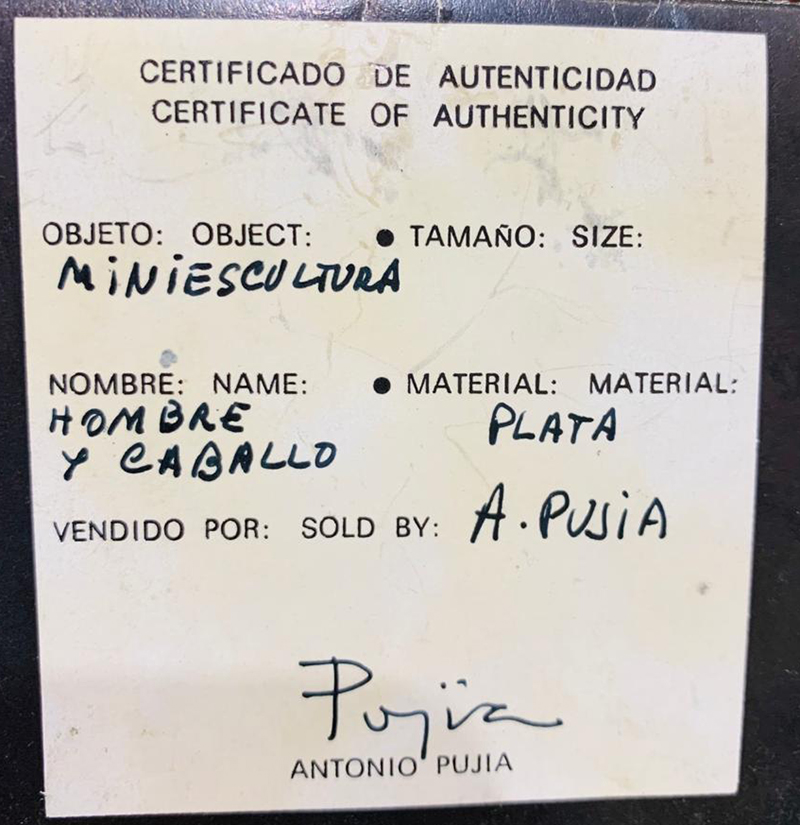 CERTIFICADO DE AUTENTICIDAD
CERTIFICATE OF AUTHENTICITY
OBJETO: OBJECT: ● TAMAÑO: SIZE:
MINIESCULTURA
NOMBRE: NAME: ● MATERIAL: MATERIAL:
HOMBRE PLATA
Y CABALLO
VENDIDO POR: SOLD BY: A. PUJIA
Pujia
ANTONIO PUJIA